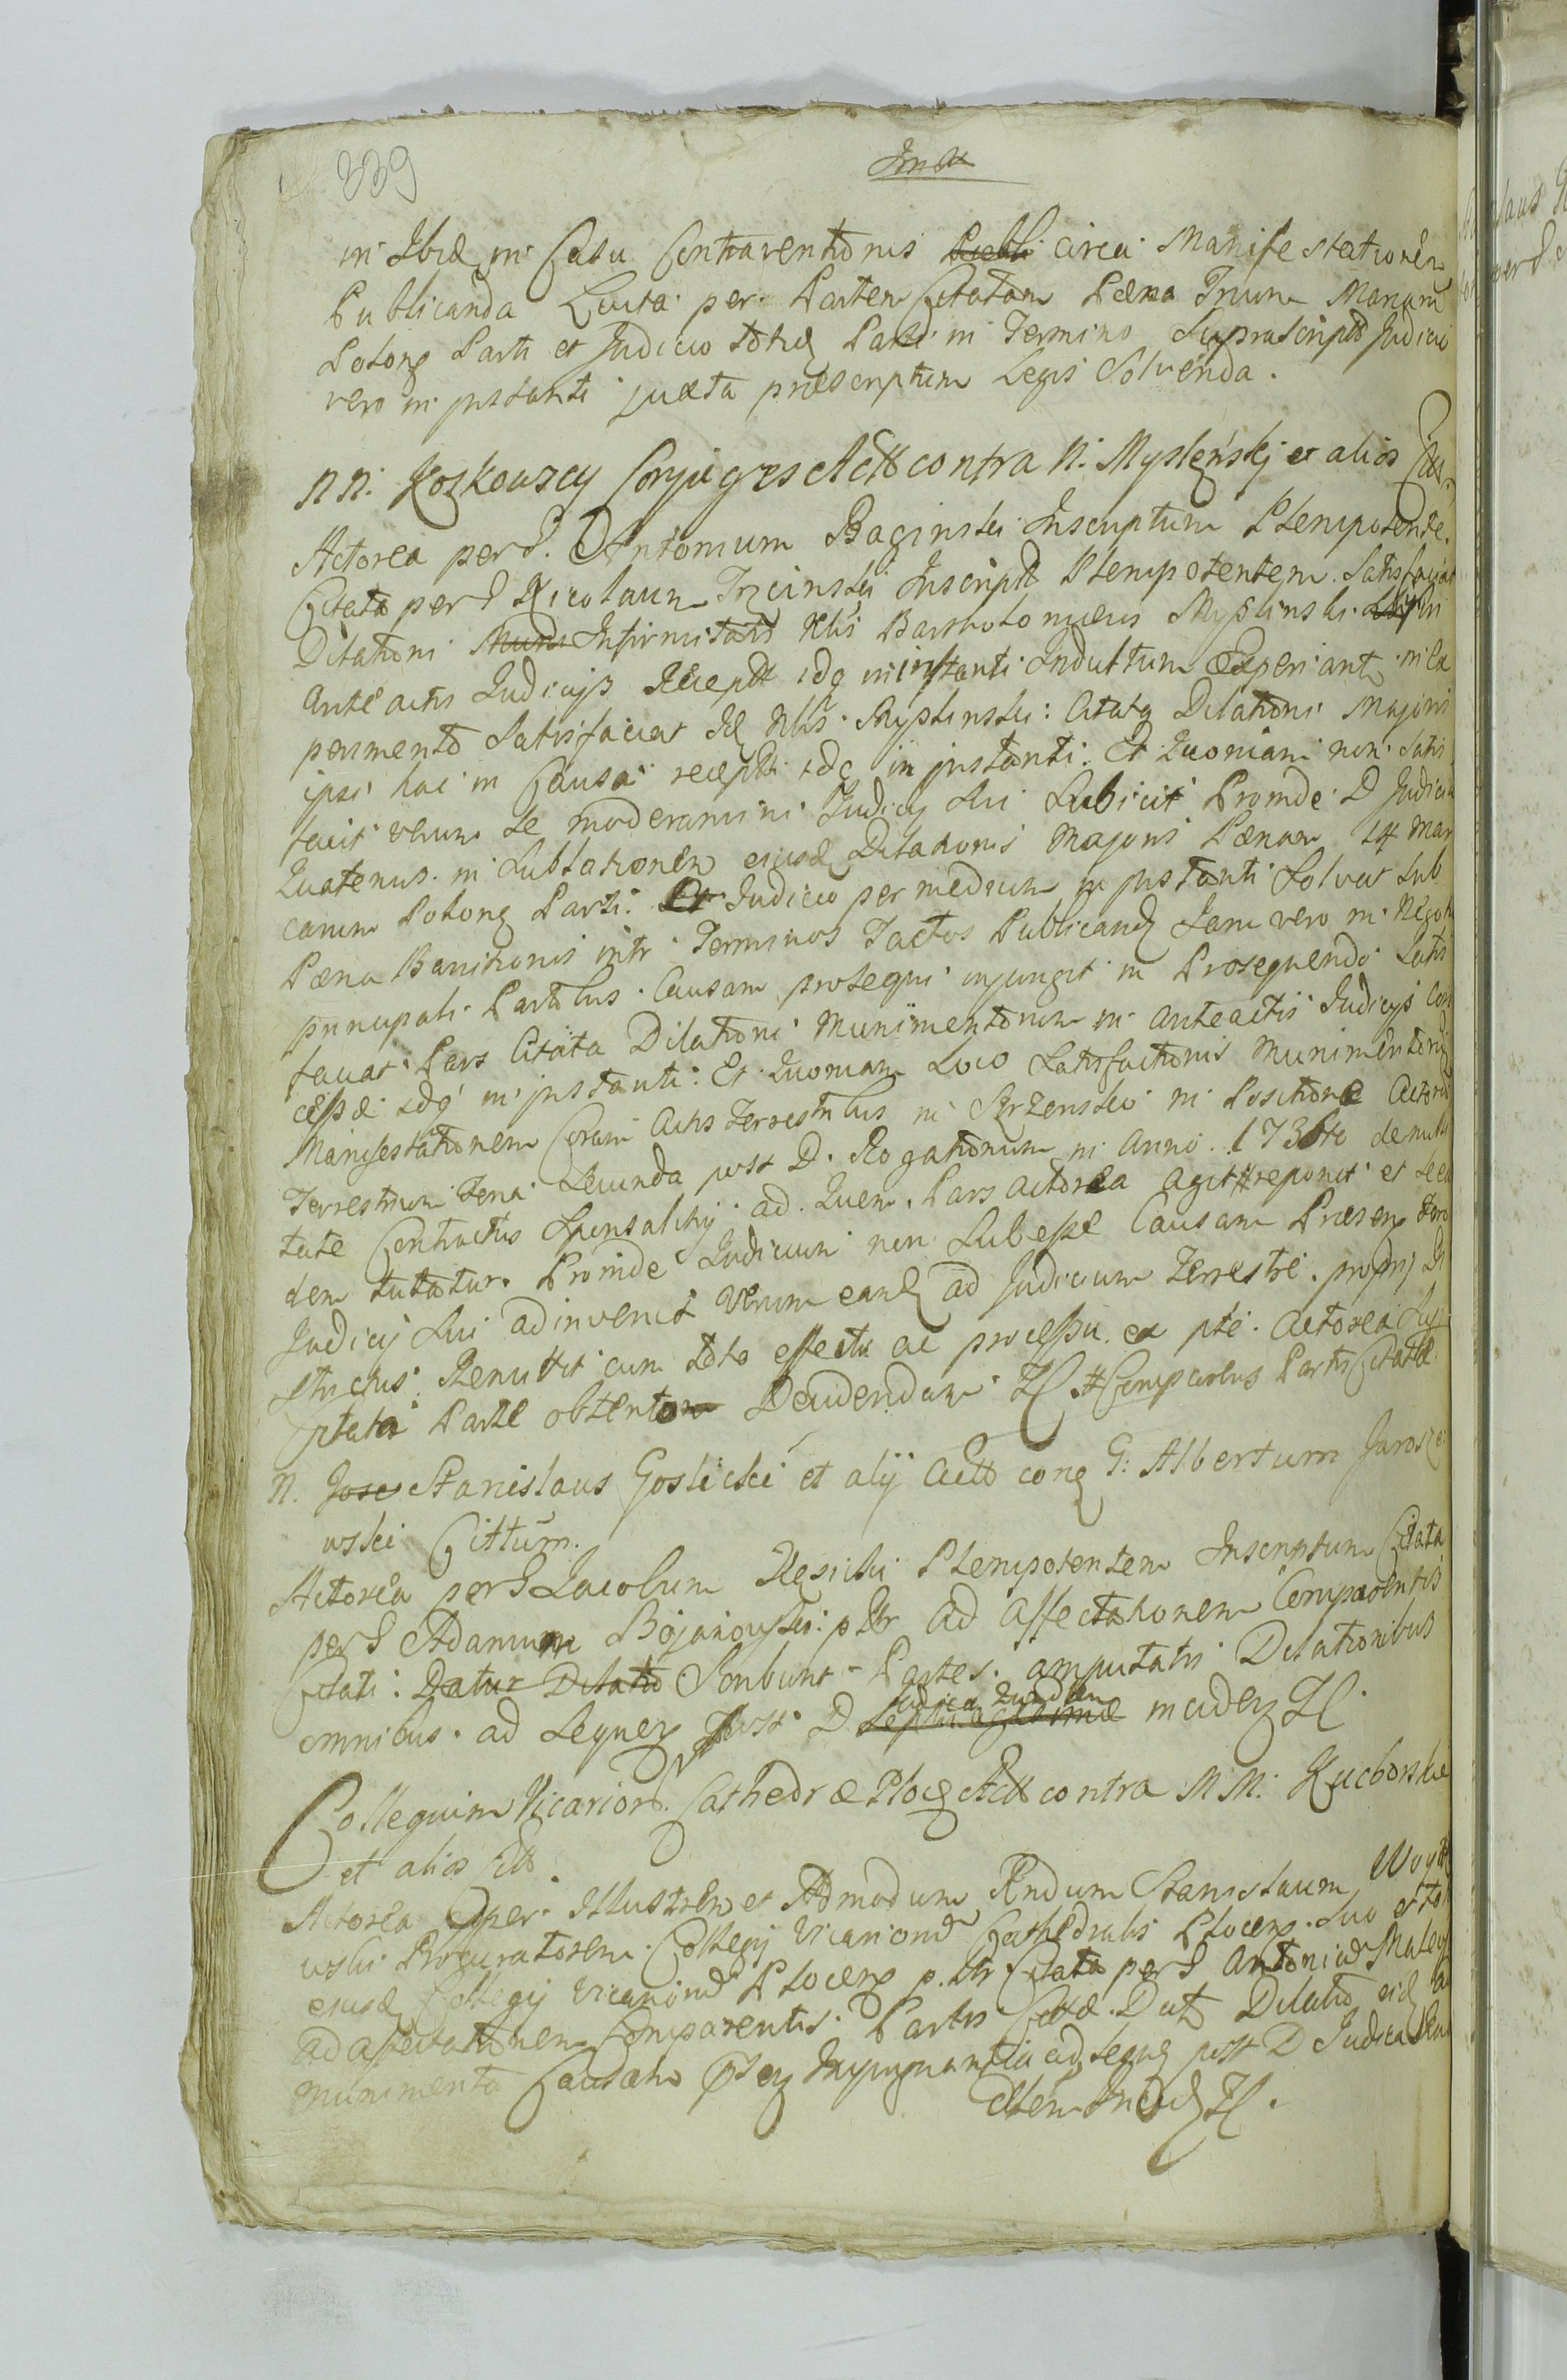 339
in Ibid in Casu Contraventionis circa Manifestationem
Publicanda Lucra per Partem Citatam Pæna Trium Marcarum
Polong Parti et Judicio totid Parti in Termino Suprascripto Judicio
vero in instanti juxta præscriptum Legis Solvenda.
NN. Koskowscy Conjuges Actt contra N. Myslęnskj et alios
Actorea per G. Antonium Baginski Inscriptum Plenipotente.
Citata per G Nicolaum Trzcinski Inscript Plenipotentem. Satisfaciat
Dilationi Infirmitatis Nbis Bartholomæus Myslinski in
anteactis Judicijs Recept idq in instanti Indultum Experiant in Ex
perimento Satisfaciat Nbis Myslinski: Citatq Dilationi Majoris
ipsi hac in Causa recept idq in instanti. Et Quoniam non satis
fecit verum se moderamini Judicij Sui Subiicit Proinde D Judicium
Quatenus in Sublationem ejusd Dilationis Majoris Pænam 14 Mar
carum Polong Parti Et Judicio per medium in instanti Solvat sub
Pæna Banitionis intr Terminos Tactos Publicand Jam vero in Negotio
principali Partibus Causam prosequi injungit in Prosequendo Satis
faciat Pars Citata Dilationi Munimentorum in anteactis Judicijs con
cessæ idq in instanti: Et Quoniam Loco Satisfactionis Munimentorum
Manifestationem Coram Actis Terrestribus in Positione Actorum
Terrestrium Feria Secunda post D. Rogationum in Anno 1736to de nulli
tate Contractus Sponsalitij ad Quem Pars Actorea Agit reponit et
dem tutatur. Proinde Judicium non Subesse Causam Præsen Foro
Judicij Sui adinvenit Verum eand ad Judicium Terrestre proprij Di
strictus Remittit cum toto effectu ac processu ex pte Actorea Super
Citata Parte obtento Decidendam Comparens Partis Citatæ
N. Stanislaus Goslicki et alij Actt cong G: Albertum Jarosze
wski Cittum.
Actorea per G Jacobum Plenipotentem Inscriptum Citata
per G Adamum Bojanowski ad affectationem Comparentis
Citati: Datur Dilatio Scribunt Partes amputatis Dilationibus
omnibus ad Sequen post D Judica
Collegium Vicarior Cathedræ Ploc Actt contra NN. Kuchorskie
et alios Citt
Actorea per Illustrem et Admodum Rndum Stanislaum
wski Procuratorem Collegij Vicariorum Cathedralis Plocens suo et toti
ejusd Collegij Vicariorum Plocens p. Citata per G Antonium
ad affectationem Comparentis Partis Cittæ Datr Dilatio eid ad
Munimenta Causam ad sequen post D Judica